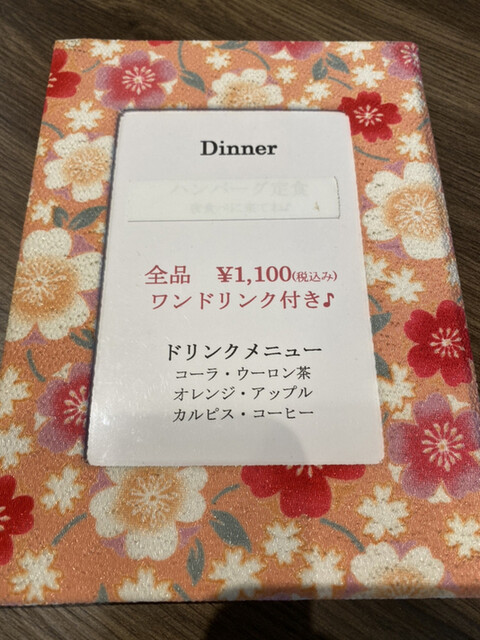 Dinner
ハンバーグ定食
全品 ¥1,100(税込み)
ワンドリンク付き♪
ドリンクメニュー
コーラ・ウーロン茶
オレンジ・アップル
カルピス・コーヒー